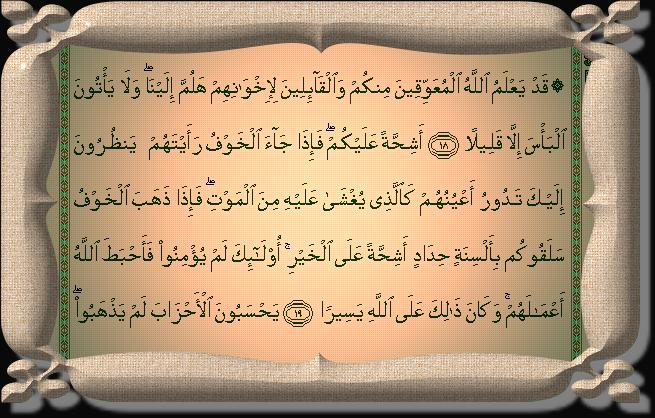 ۞ قَدْ يَعْلَمُ ٱللَّهُ ٱلْمُعَوِّقِينَ مِنكُمْ وَٱلْقَآئِلِينَ لِإِخْوَٰنِهِمْ هَلُمَّ إِلَيْنَا ۖ وَلَا يَأْتُونَ
ٱلْبَأْسَ إِلَّا قَلِيلًا ١٨ أَشِحَّةً عَلَيْكُمْ ۖ فَإِذَا جَآءَ ٱلْخَوْفُ رَأَيْتَهُمْ يَنظُرُونَ
إِلَيْكَ تَدُورُ أَعْيُنُهُمْ كَٱلَّذِى يُغْشَىٰ عَلَيْهِ مِنَ ٱلْمَوْتِ ۖ فَإِذَا ذَهَبَ ٱلْخَوْفُ
سَلَقُوكُم بِأَلْسِنَةٍ حِدَادٍ أَشِحَّةً عَلَى ٱلْخَيْرِ ۚ أُو۟لَٰٓئِكَ لَمْ يُؤْمِنُوا۟ فَأَحْبَطَ ٱللَّهُ
أَعْمَٰلَهُمْ ۚ وَكَانَ ذَٰلِكَ عَلَى ٱللَّهِ يَسِيرًا ١٩ يَحْسَبُونَ ٱلْأَحْزَابَ لَمْ يَذْهَبُوا۟ ۖ